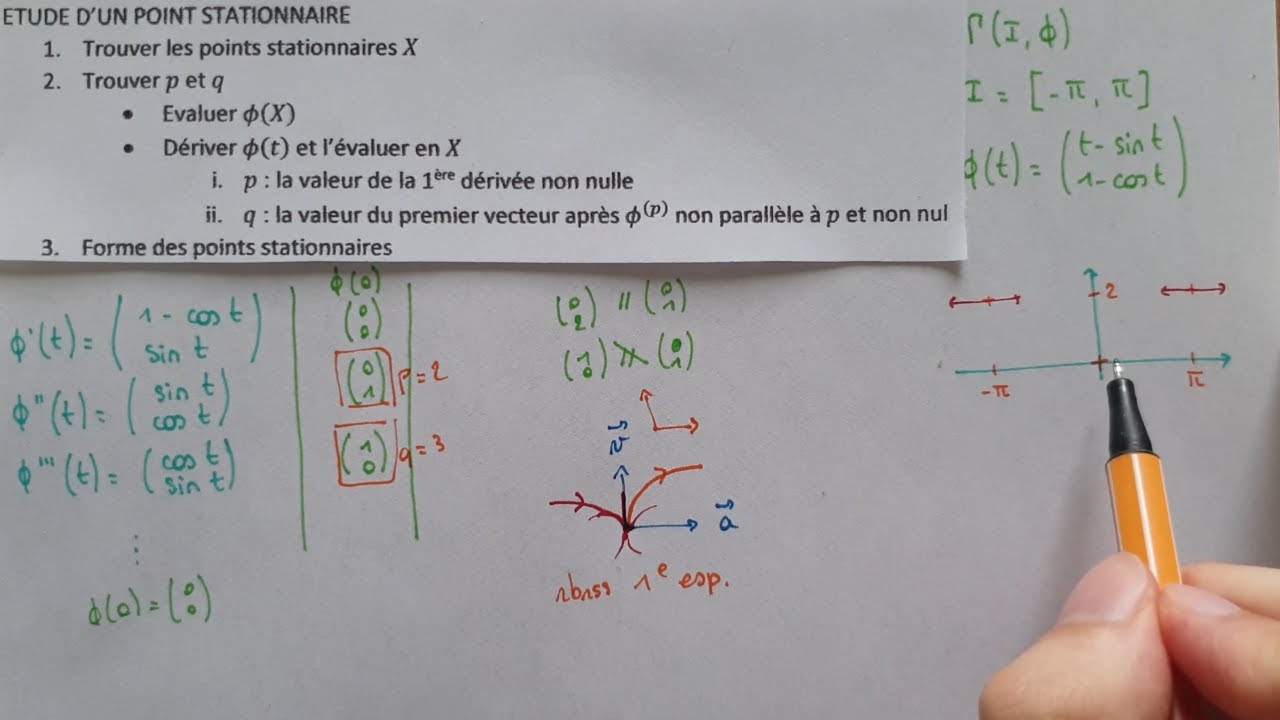 ETUDE D'UN POINT STATIONNAIRE
1. Trouver les points stationnaires X
2. Trouver p et q
• Evaluer ϕ(X)
• Dériver ϕ(t) et l'évaluer en X
i. p : la valeur de la 1ère dérivée non nulle
ii. q : la valeur du premier vecteur après ϕ^(p) non parallèle à p et non nul
3. Forme des points stationnaires
Γ(I, ϕ)
I = [-π, π]
ϕ(t) = (t - sin t
1 - cos t)
ϕ'(t) = (1 - cos t
sin t)
ϕ''(t) = (sin t
cos t)
ϕ'''(t) = (cos t
sin t)
⋮
ϕ(0) = (0
0)
ϕ(0)
(0
0)
(0
1) p = 2
(1
0) q = 3
(0
2) // (0
1)
(1
0) ∦ (0
1)
v
a
rbrss 1e esp.
2
-π
π